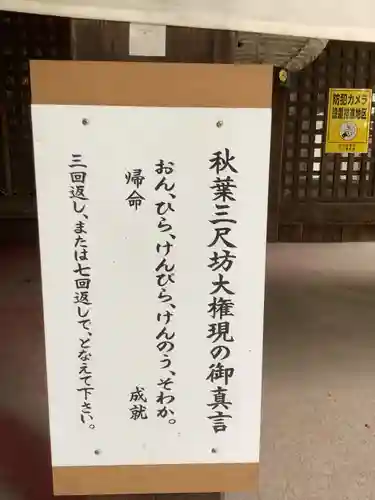 秋葉三尺坊大権現の御真言
おん、ひら、けんぴら、けんのう、そわか。
帰命
成就
三回返し、または七回返しで、となえて下さい。
防犯カメラ
設置推進地区